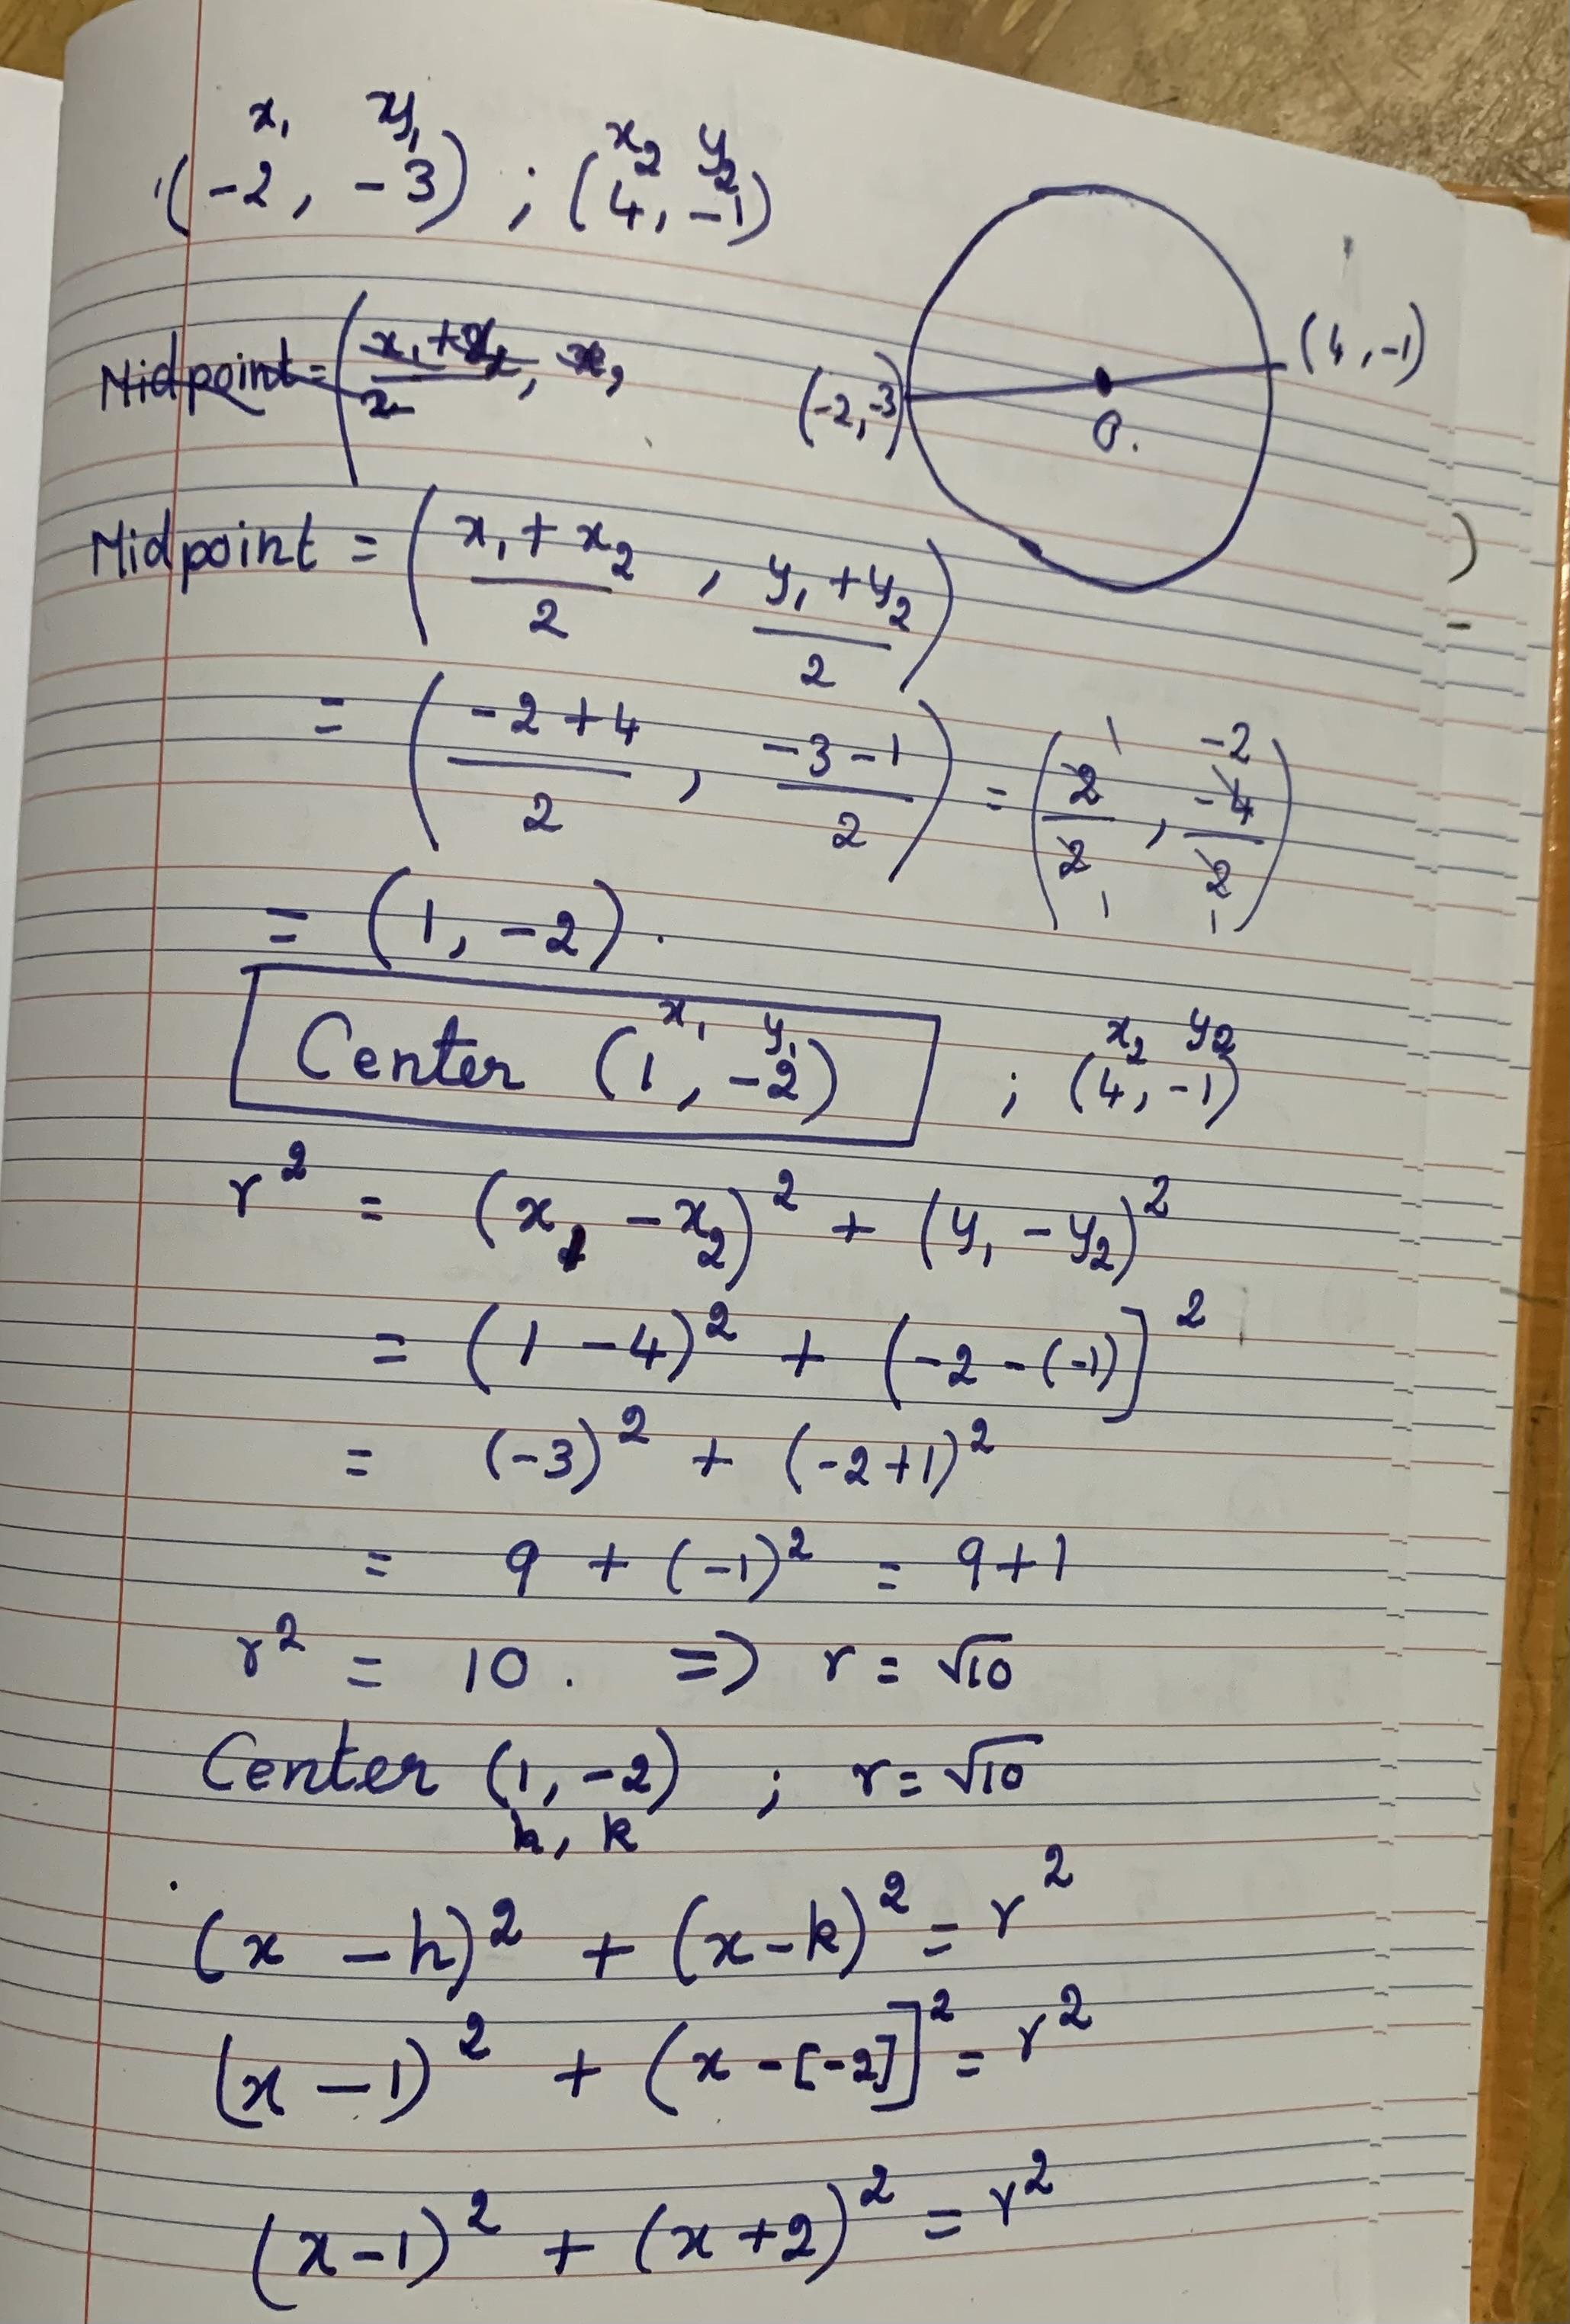 x₁ y₁ x₂ y₂
(-2, -3) ; (4, -1)
Midpoint = (x₁+x₂/2, x,
(-2, -3) (4, -1)
O.
Midpoint = (x₁ + x₂/2 , y₁ + y₂/2)
= (-2+4/2 , -3-1/2) = (2/2 , -4/2) 1 -2 1 1
= (1, -2).
x₁ y₁ x₂ y₂
Center (1, -2) ; (4, -1)
r² = (x₁ - x₂)² + (y₁ - y₂)²
= (1 - 4)² + (-2 - (-1)]²
= (-3)² + (-2+1)²
= 9 + (-1)² = 9+1
r² = 10. => r = √10
Center (1, -2) ; r = √10
h, k
(x - h)² + (x - k)² = r²
(x - 1)² + (x - [-2]]² = r²
(x-1)² + (x+2)² = r²